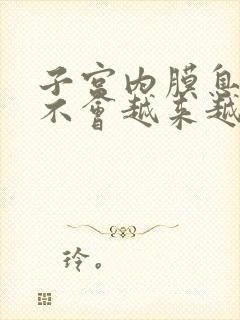 子宫内膜息
不會越来越
玲。